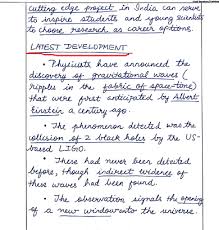 cutting edge project in India can serve
to inspire students and young scientists
to choose research as career options.
LATEST DEVELOPMENT
• Physicists have announced the
discovery of gravitational waves (
ripples in the fabric of space-time)
that were first anticipated by Albert
Einstein a century ago.
• The phenomenon detected was the
collision of 2 black holes by the US-
based LIGO.
• These had never been detected
before, though indirect evidence of
these waves had been found.
• The observation signals the opening
of a new window onto the universe.